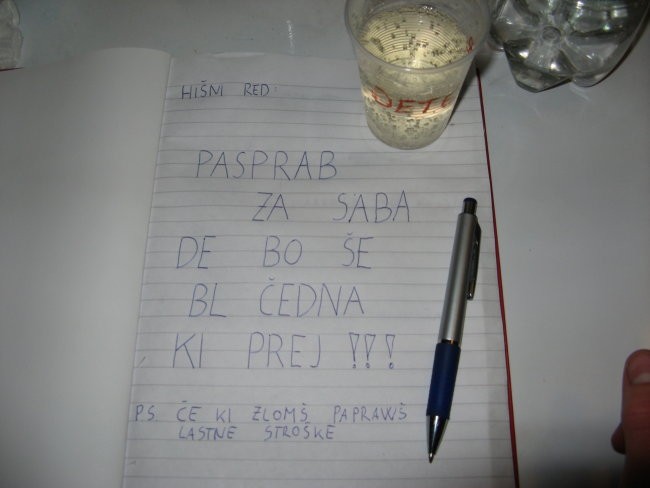 HIŠNI RED:
DETE
PASPRAB
ZA SABA
DE BO ŠE
BL ČEDNA
KI PREJ !!!
P.S. ČE KI ZLOMŠ, PAPRAVIŠ
LASTNE STROŠKE